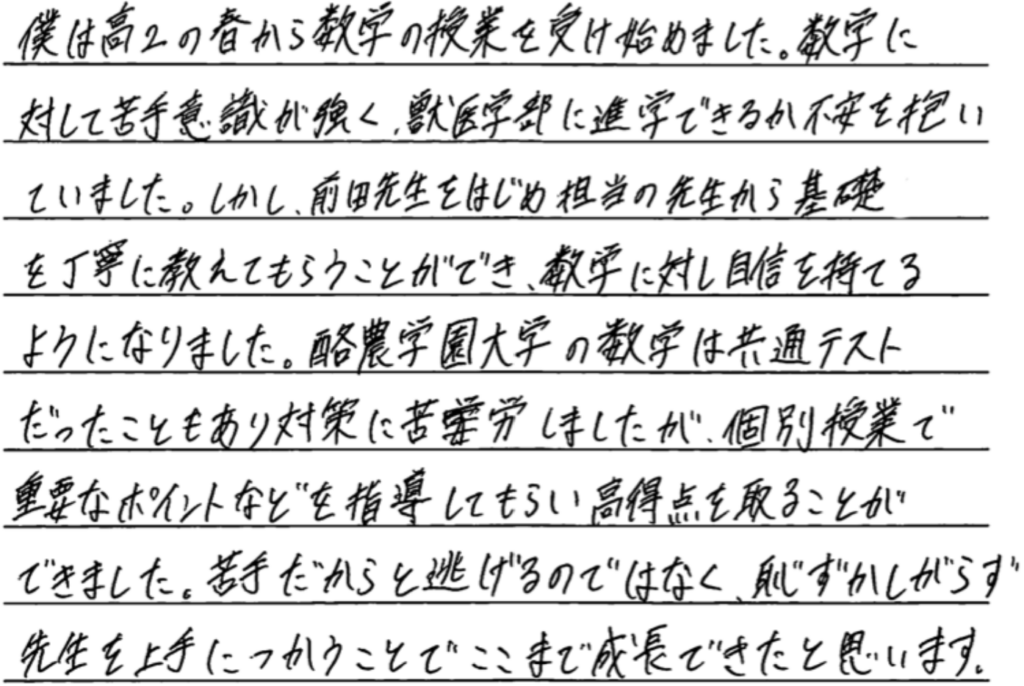 僕は高2の春から数学の授業を受け始めました。数学に
対して苦手意識が強く、獣医学部に進学できるか不安を抱い
ていました。しかし、前田先生をはじめ担当の先生から基礎
を丁寧に教えてもらうことができ、数学に対し自信を持てる
ようになりました。酪農学園大学の数学は共通テスト
だったこともあり対策に苦労しましたが、個別授業で
重要なポイントなどを指導してもらい高得点を取ることが
できました。苦手だからと逃げるのではなく、恥ずかしがらず
先生を上手につかうことでここまで成長できたと思います。